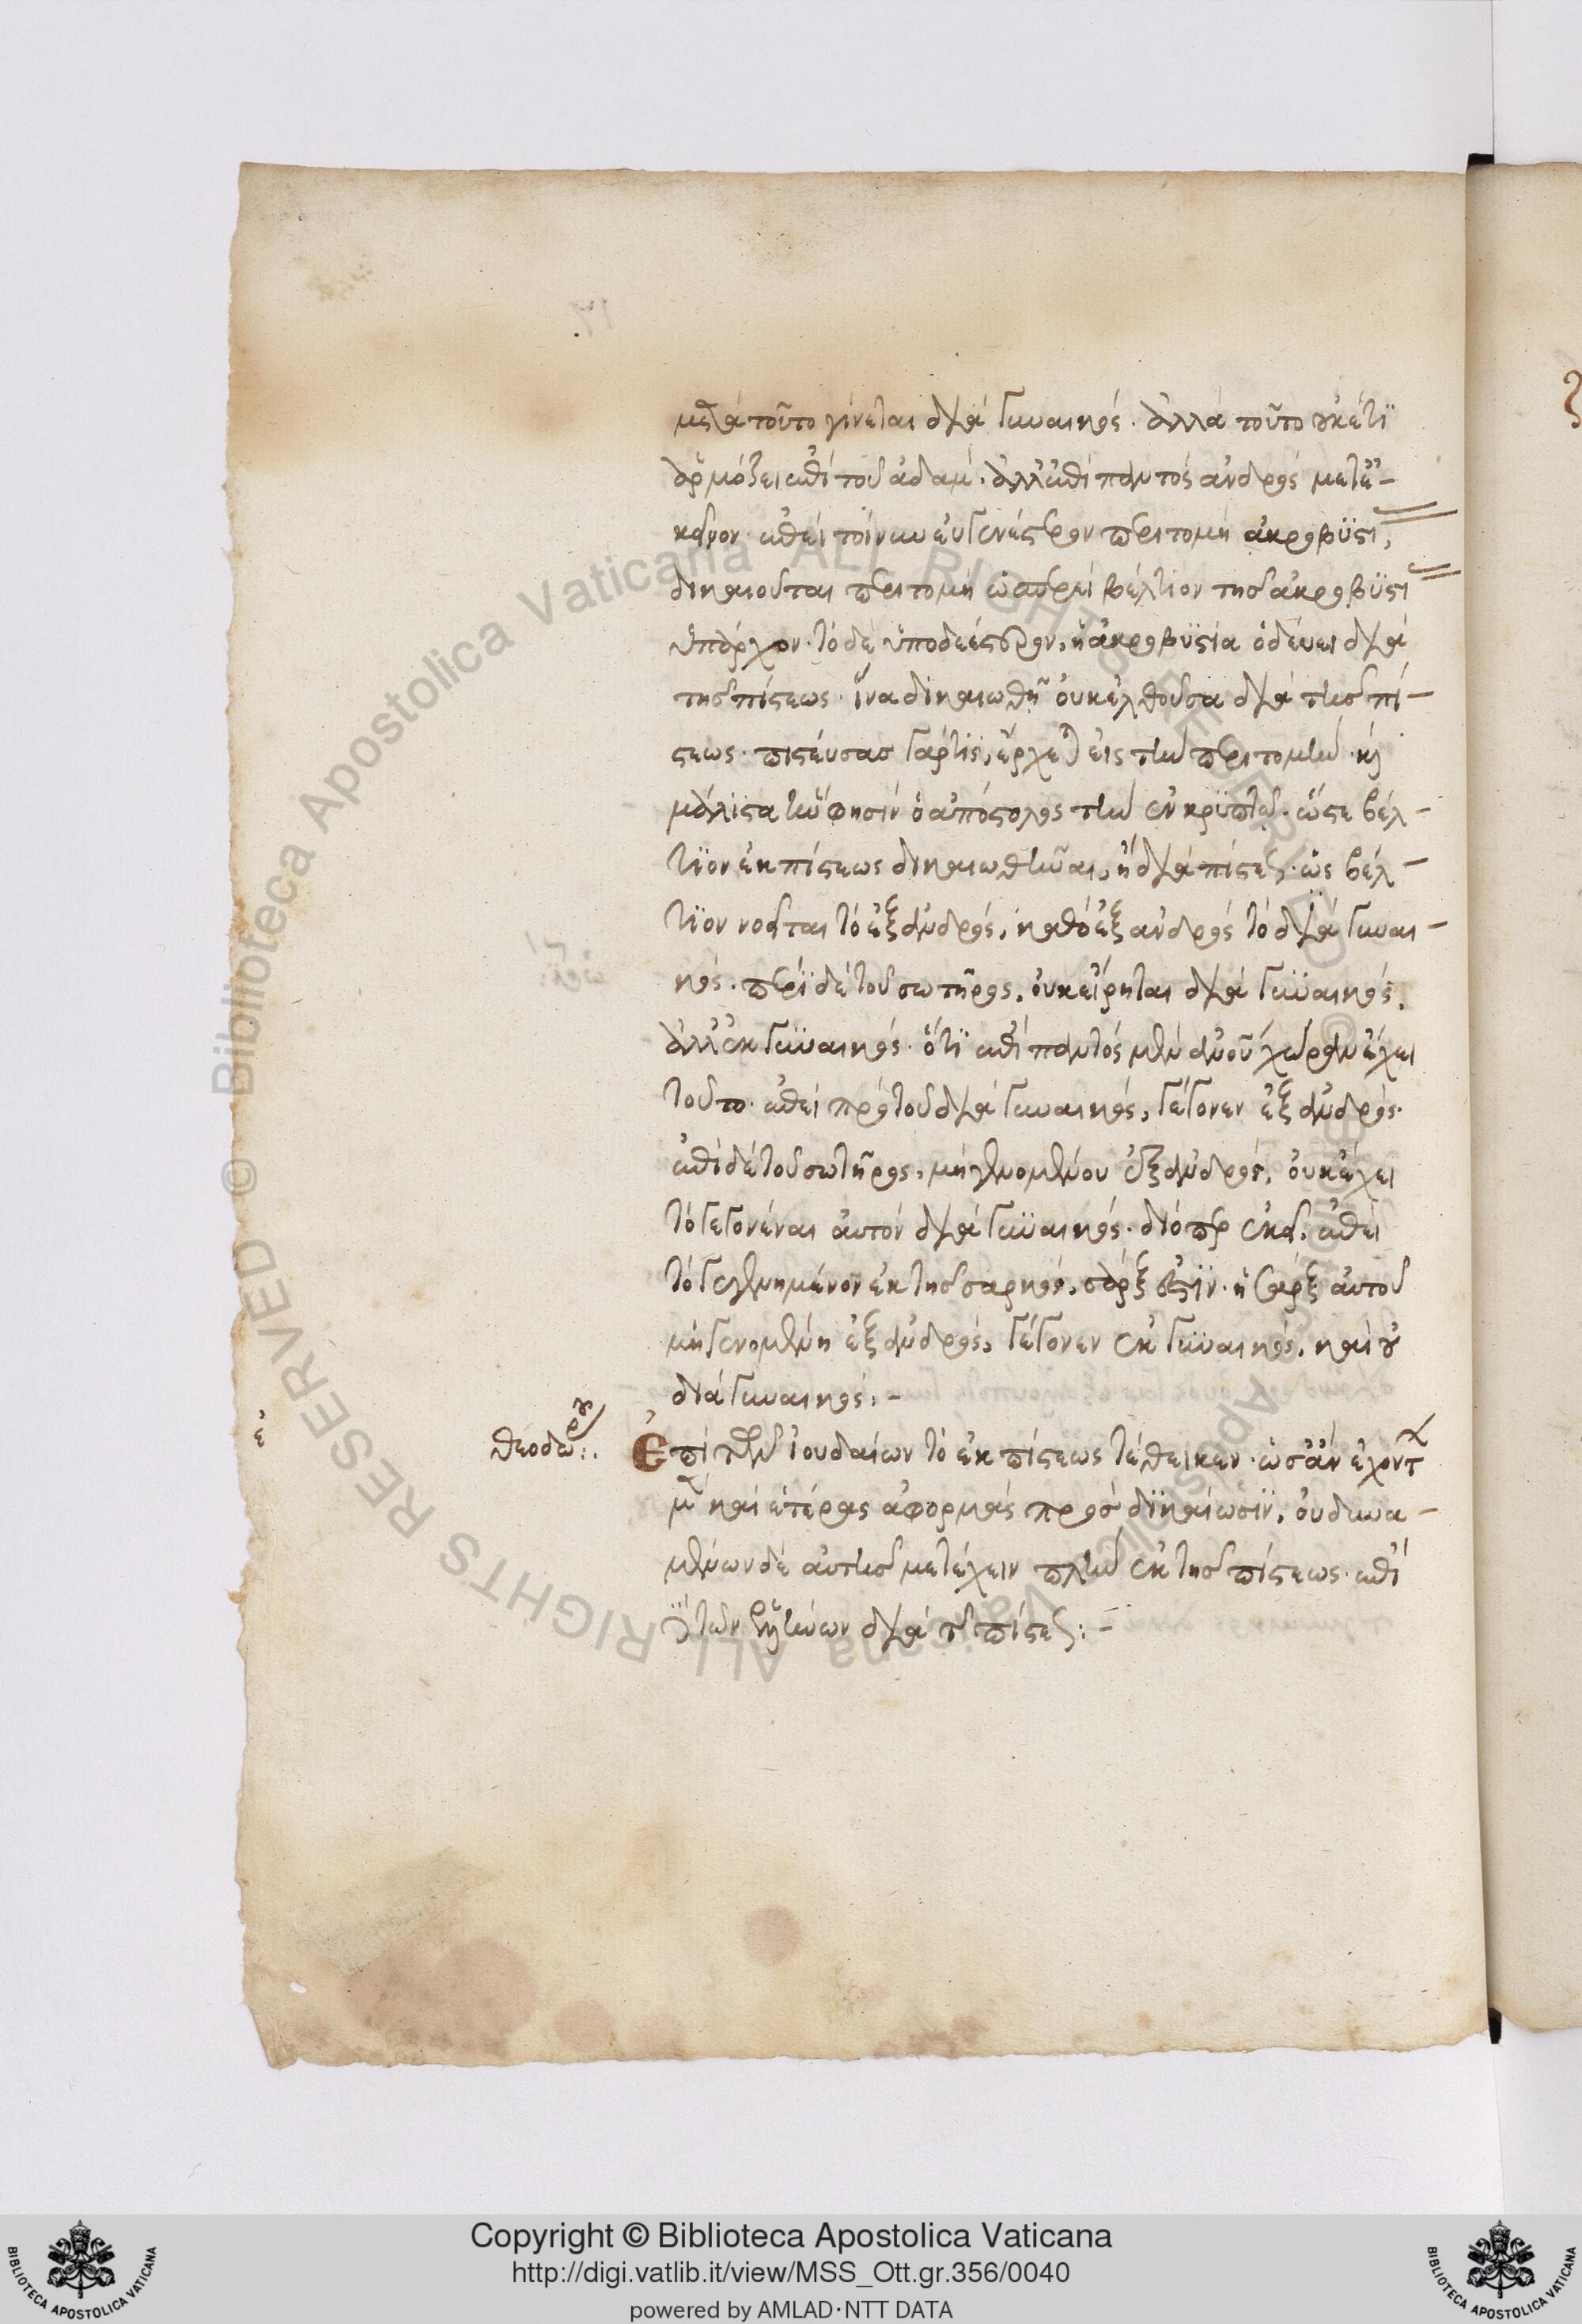 μετὰ τοῦτο γίνεται διὰ γυναικός. ἀλλὰ τοῦτο οὐκέτι
ἁρμόζει ἐπὶ τοῦ ἀδάμ. ἀλλ' ἐπὶ παντὸς ἀνδρὸς μετ' ἐ-
κεῖνον. ἐπεὶ τοίνυν εὐγενέστερον περιτομὴ ἀκροβυστί,
δικαιοῦται περιτομὴ ὡσπερεὶ βέλτιον τῆς ἀκροβυστί
ὑπάρχον. τὸ δὲ ὑποδεέστερον, ἡ ἀκροβυστία ὁδεύει διὰ
τῆς πίστεως. ἵνα δικαιωθῇ οὐκ ἐλθοῦσα διὰ τῆς πί-
στεως. πιστεύσας γάρ τις, ἔρχεται εἰς τὴν περιτομὴν. καὶ
μάλιστα ἥν φησιν ὁ ἀπόστολος τὴν ἐν κρυπτῷ. ὥστε βέλ-
τιον ἐκ πίστεως δικαιωθῆναι, ἢ διὰ πίστεως. ὡς βέλ-
τιον νοεῖται τὸ ἐξ ἀνδρός, καθὸ ἐξ ἀνδρὸς τὸ διὰ γυναι-
κός. περὶ δὲ τοῦ σωτῆρος, οὐκ εἴρηται διὰ γυναικός,
ἀλλ' ἐκ γυναικός. ὅτι ἐπὶ παντὸς μὲν ἀνοῦ χώραν ἔχει
τοῦτο. ἐπεὶ πρὸ τοῦ διὰ γυναικός, γέγονεν ἐξ ἀνδρός.
ἐπὶ δὲ τοῦ σωτῆρος, μὴ γενομένου ἐξ ἀνδρός, οὐκ ἔχει
τὸ γεγονέναι αὐτὸν διὰ γυναικός. διόπερ ἐκεῖ, ἐπεὶ
τὸ γεγεννημένον ἐκ τῆς σαρκός, σάρξ ἐστιν. ἡ σὰρξ αὐτοῦ
μὴ γενομένη ἐξ ἀνδρός, γέγονεν ἐκ γυναικός, καὶ οὐ
διὰ γυναικός:-
ε
θεοδώρου:.
Ἐπὶ τῶν ἰουδαίων τὸ ἐκ πίστεως τέθεικεν. ὡς ἂν ἐχόντων
μὲν καὶ ἑτέρας ἀφορμὰς πρὸς δικαίωσιν, οὐ δυνα-
μένων δὲ αὐτῆς μετέχειν πλὴν ἐκ τῆς πίστεως. ἐπὶ
δὲ τῶν διὰ τῆς πίστεως:-
Copyright © Biblioteca Apostolica Vaticana
http://digi.vatlib.it/view/MSS_Ott.gr.356/0040
powered by AMLAD·NTT DATA